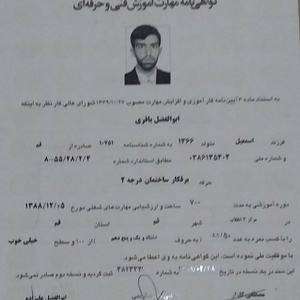 گواهی‌نامه مهارت آموزش فنی و حرفه‌ای
به استناد ماده ۴ آیین‌نامه کارآموزی و افزایش مهارت مصوب شورای عالی کار نظر به اینکه
ابوالفضل باقری
فرزند اسمعیل متولد ۱۳۶۶ به شماره شناسنامه ۱۰۷۵۱ صادره از قم
و شماره ملی ۰۳۸۶۱۳۵۳۰۲ مطابق استاندارد شماره ۸-۵۵/۲۸/۲/۴
حرفه برقکار ساختمان درجه ۲
دوره آموزشی به مدت ۷۰۰ ساعت و ارزشیابی مهارت‌های شغلی مورخ ۱۳۸۸/۱۲/۰۵
در مرکز شهر قم استان قم
را با کسب نمره به عدد ۸۱/۵۰ به حروف هشتاد و یک و پنج دهم از ۱۰۰ و سطح خیلی خوب
با موفقیت طی نموده است. این گواهی نامه به وی اعطا می‌شود
این سند در یک نسخه در تاریخ به شماره ثبت گردید و نسخه دوم صادر نمی‌شود.